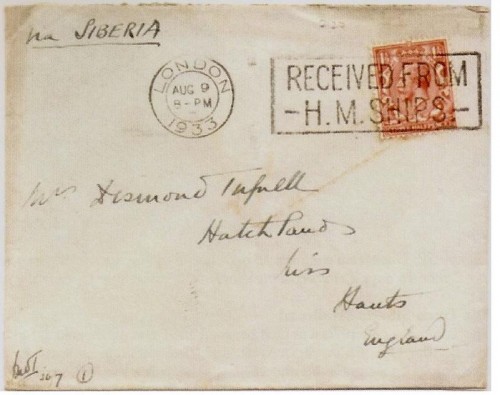 via SIBERIA
LONDON
AUG 9
8-PM
1933
RECEIVED FROM
H.M. SHIPS
Mrs Desmond Tufnell
Hatchlands
Liss
Hants
England
367 1